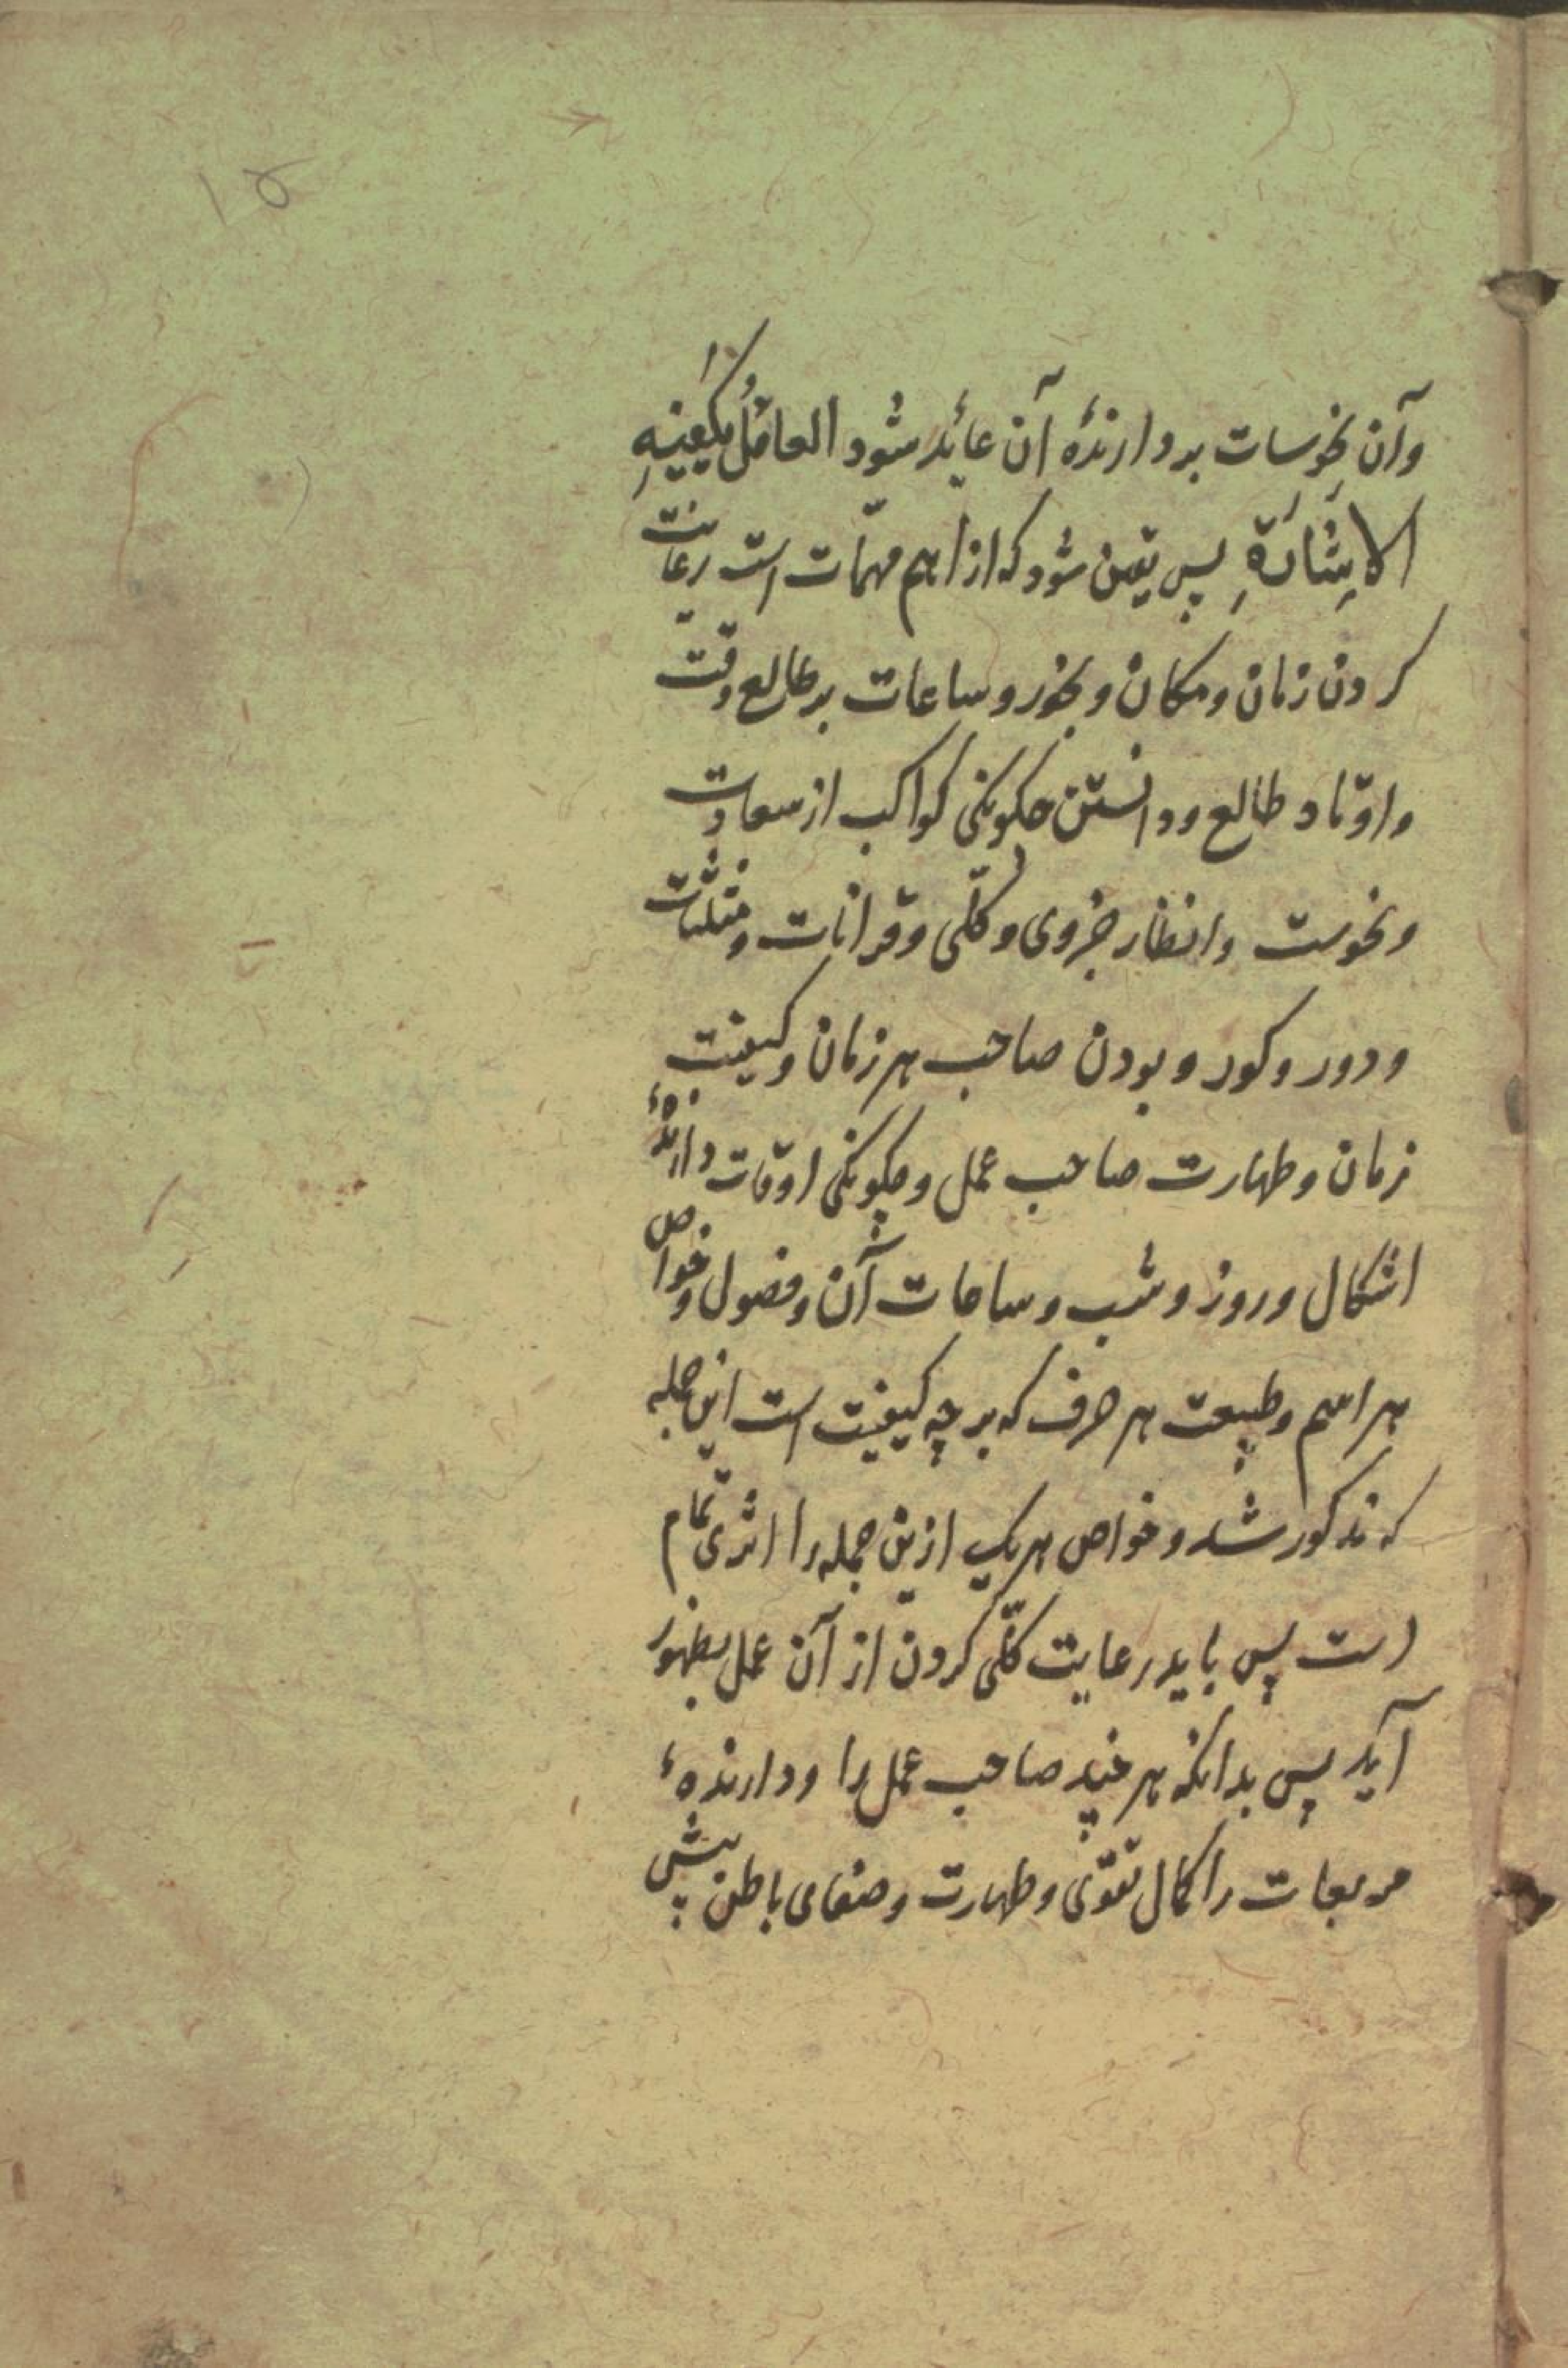 ۱۵
وآن نحوسات بر دارندهٔ آن عاید شود العاقلُ یکفیهِ
الاِشارَةِ پس یقین شود که از اهم مهمّات است رعایت
کردن زمان ومکان و بخور و ساعات بر طالع وقت
و اوتاد طالع و دانستن چکونکی کواکب از سعادت
و نحوست و انظار جزوی و کلّی و قرانات و مثلثات
و دور و کور و بودن صاحب هر زمان و کیفیت
زمان و طهارت صاحب عمل و چکونکی اوقات دارندهٔ
اشکال و روز و شب و ساعات آن و فصول و خواص
هر اسم و طبیعت هر حرف که بر چه کیفیت است این جمله
که مذکور شد و خواص هر یک ازین جمله را اثری تمام
است پس باید رعایت کلّی کردن از آن عمل بظهور
آید پس بدانکه هر چند صاحب عمل را و دارندهٔ
مربعات را کمال تقوی و طهارت و صفای باطن بیش